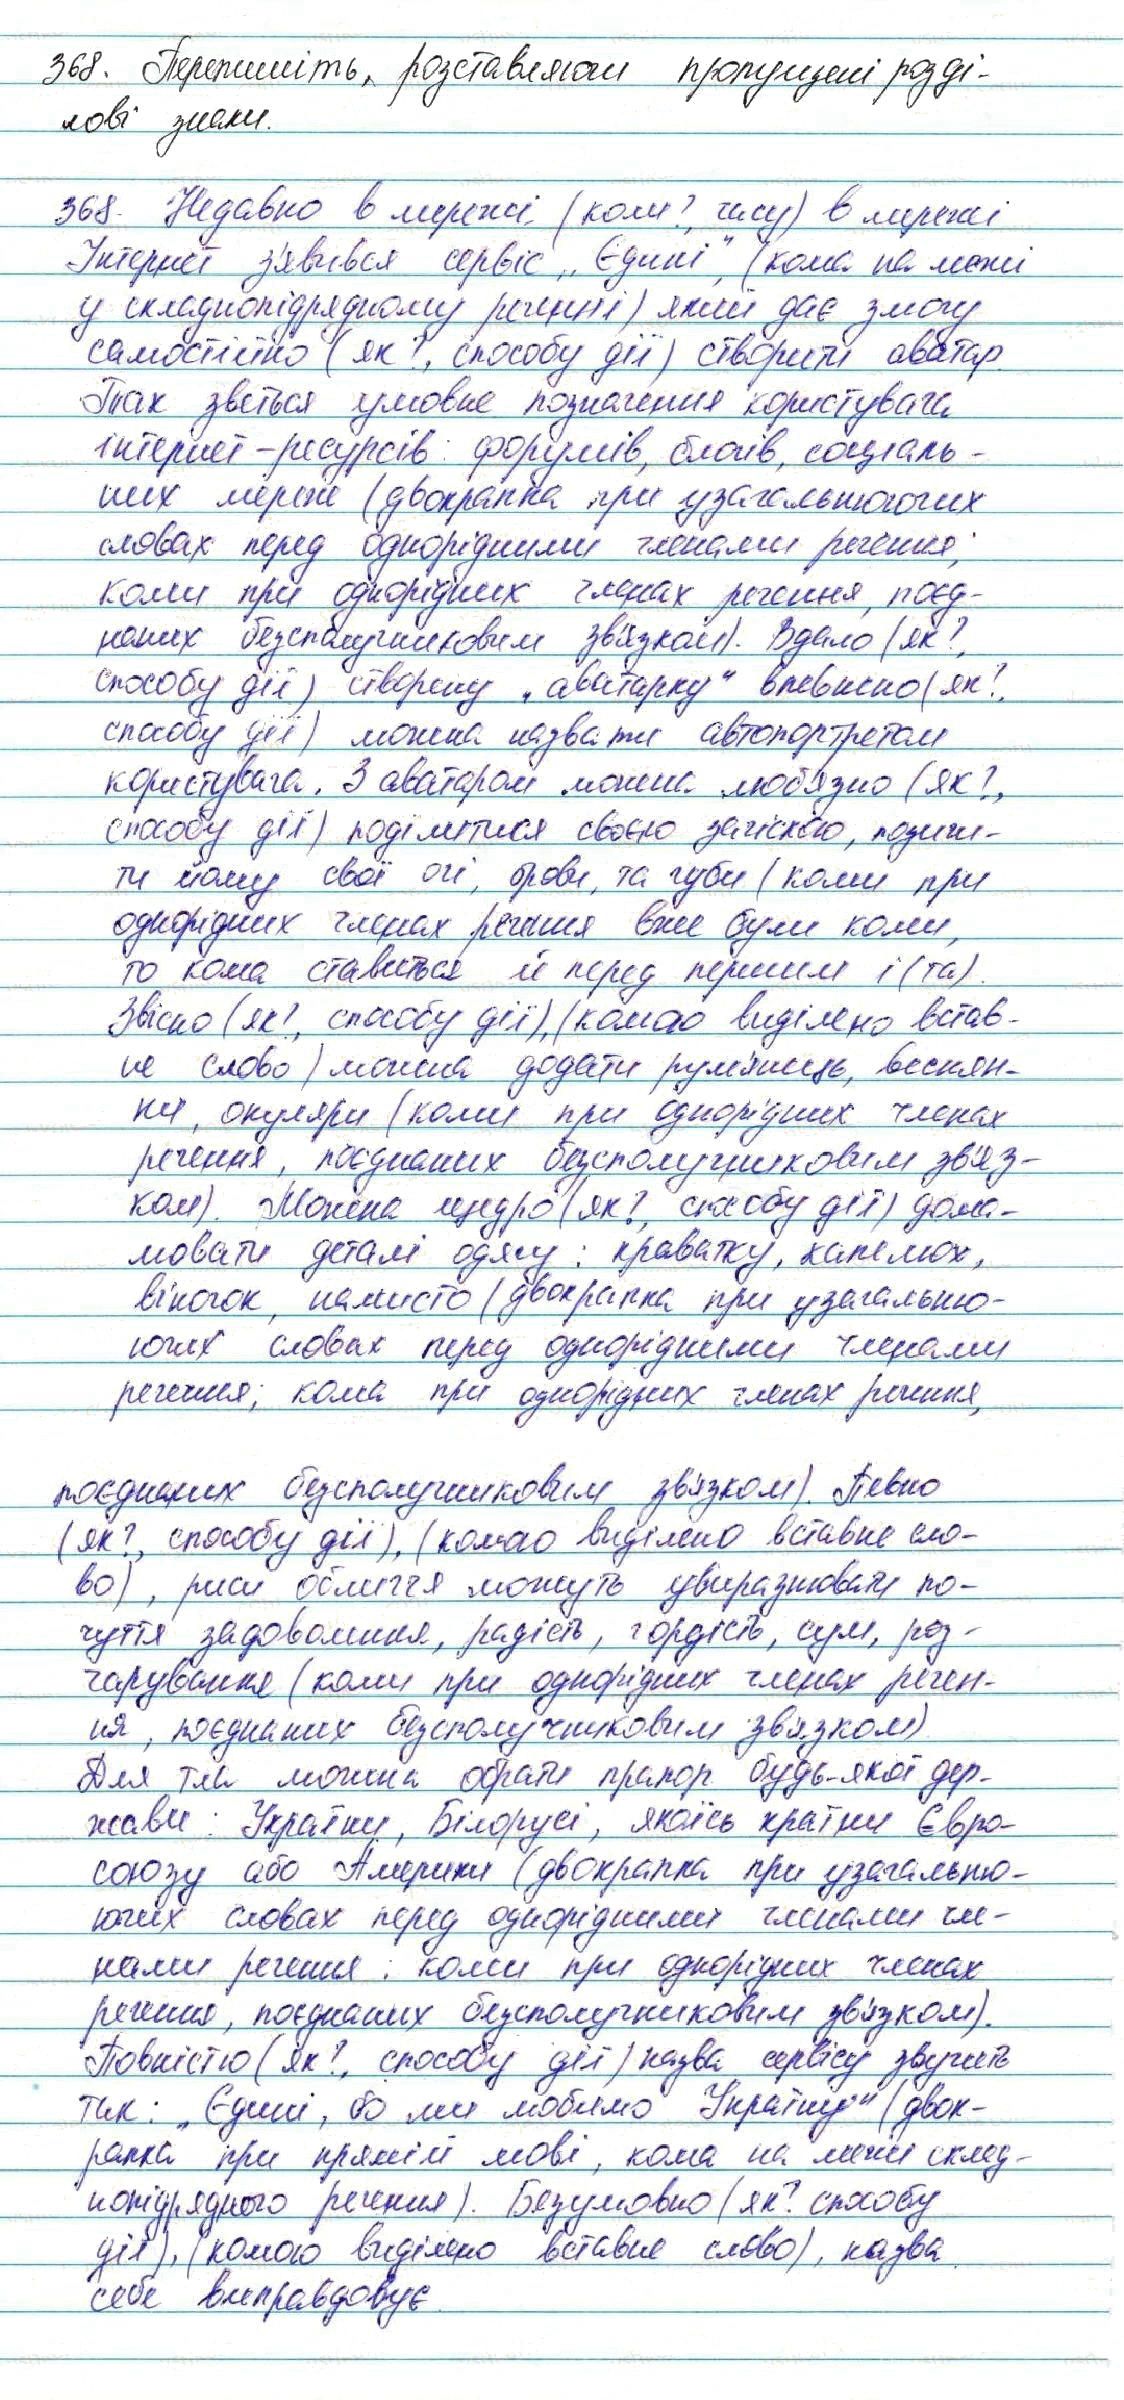 368. Перепишіть, розставляючи пропущені розді-
лові знаки.
368. Недавно в мережі (коли?, часу) в мережі
Інтернет з'явився сервіс „Єдині", (кома на межі
у складнопідрядному реченні) який дає змогу
самостійно (як?, способу дії) створити аватар.
Так зветься умовне позначення користувача
інтернет-ресурсів: форумів, блогів, соціаль-
них мереж (двокрапка при узагальнюючих
словах перед однорідними членами речення;
коми при однорідних членах речення, поєд-
наних безсполучниковим зв'язком). Вдало (як?,
способу дії) створену „аватарку" впевнено (як?,
способу дії) можна назвати автопортретом
користувача. З аватаром можна люб'язно (як?,
способу дії) поділитися своєю зачіскою, позичи-
ти йому свої очі, брови, та губи (коми при
однорідних членах речення вже були коми,
то кома ставиться й перед першим і (та).
Звісно (як?, способу дії), (комою виділено встав-
не слово) можна додати рум'янець, веснян-
ки, окуляри (коми при однорідних членах
речення, поєднаних безсполучниковим зв'яз-
ком). Можна щедро (як?, способу дії) дома-
лювати деталі одягу: краватку, капелюх,
віночок, намисто (двокрапка при узагальню-
ючих словах перед однорідними членами
речення; кома при однорідних членах речення,
поєднаних безсполучниковим зв'язком). Певно
(як?, способу дії), (комою виділено вставне сло-
во), риси обличчя можуть увиразнювати по-
чуття задоволення, радість, гордість, сум, роз-
чарування (коми при однорідних членах речен-
ня, поєднаних безсполучниковим зв'язком)
Для тла можна обрати прапор будь-якої дер-
жави: України, Білорусі, якоїсь країни Євро-
союзу або Америки (двокрапка при узагальню-
ючих словах перед однорідними членами чле-
нами речення: коми при однорідних членах
речення, поєднаних безсполучниковим зв'язком).
Повністю (як?, способу дії) назва сервісу звучить
так: „Єдині, бо ми любимо Україну" (двок-
рапка при прямій мові, кома на межі склад-
нопідрядного речення). Безумовно (як? способу
дії), (комою виділено вставне слово), назва
себе виправдовує.